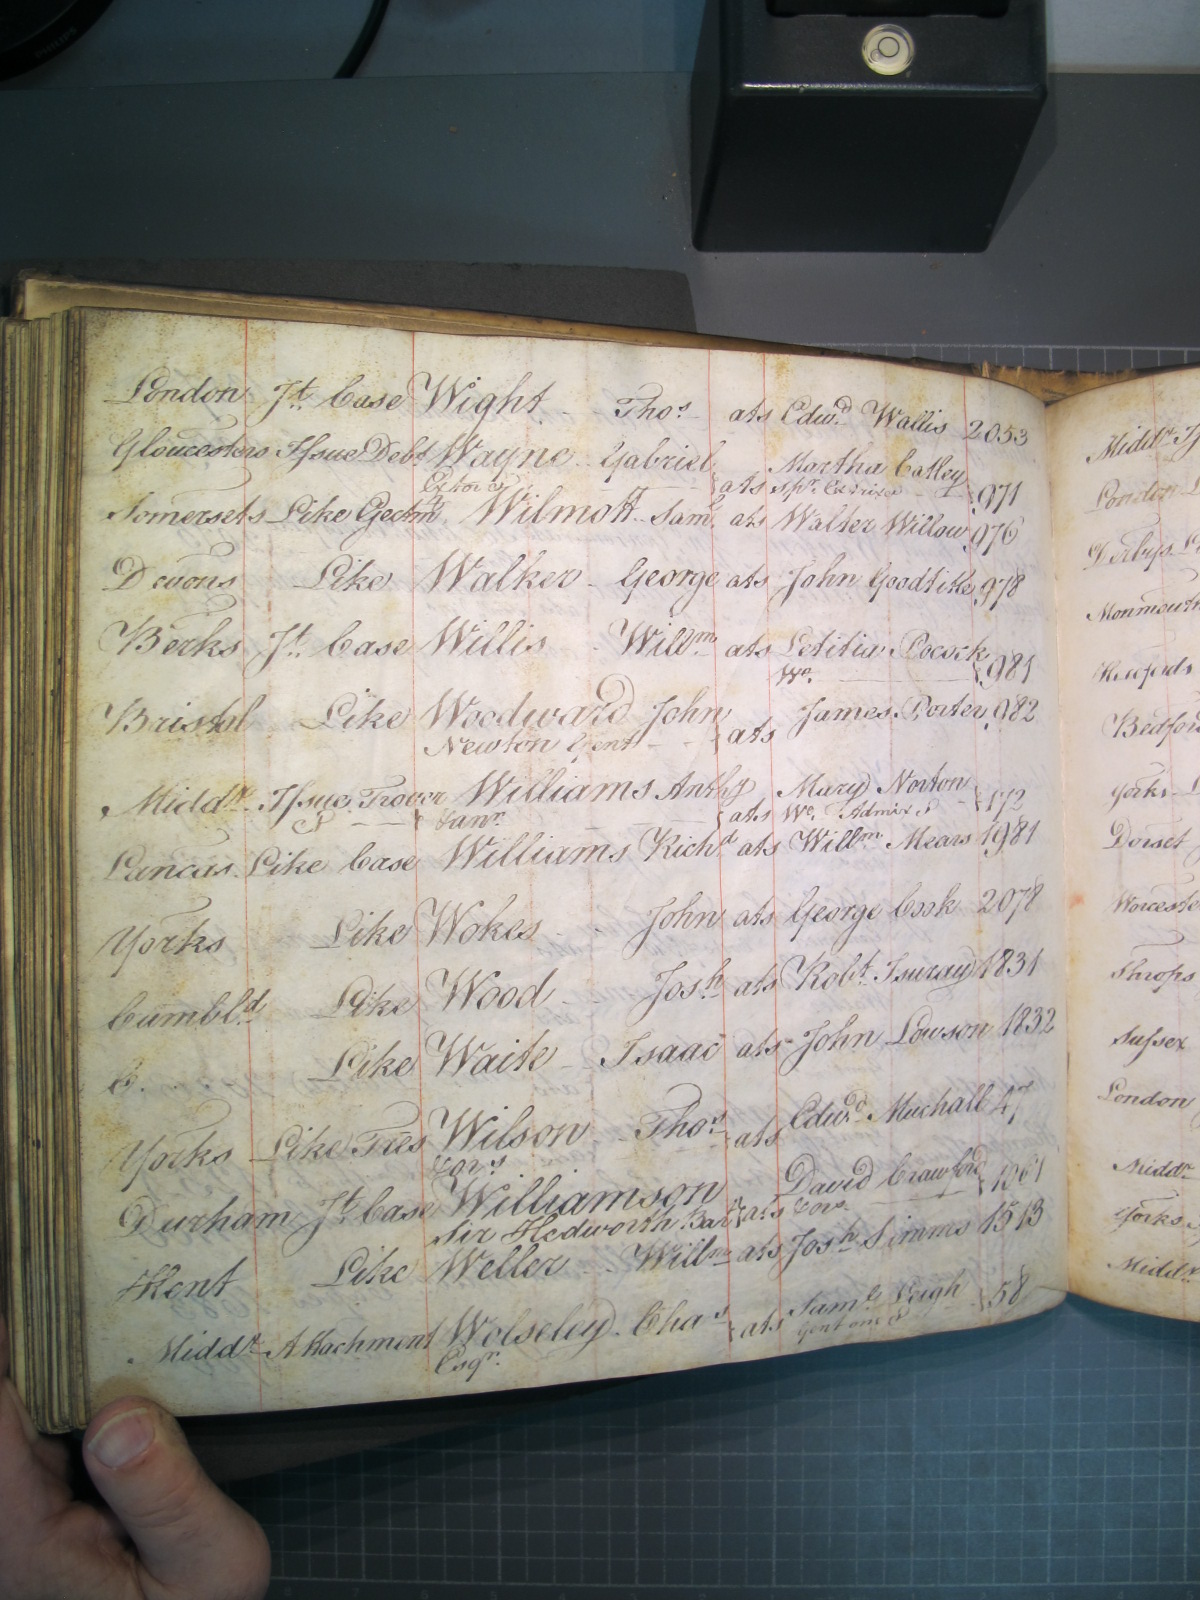 London Jt. Case Wight Thos. ats Edwd. Wallis 2053
Gloucesters Issue Debt Wayne Gabriel ats Martha Catley 971
Somersets Like Eject Wilmott Saml. ats Walter Willow 976
Devons Like Walker George ats John Goodtitle 978
Berks Jt. Case Willis Willm ats Letitia Pocock 981
Wo.
Bristol Like Woodward John ats James Porter 982
Newton Gent
Middx. Issue Trover Williams Anthy ats Mary Norton 172
& Wo. Admix &
Lancas. Like Case Williams Richd ats Willm Mears 1981
Yorks Like Wokes John ats George Cook 2078
Cumbld. Like Wood Josh ats Robt. 1831
C. Like Waite Isaac ats John Lowson 1832
Yorks Like Tres Wilson Thos. ats Edwd. Machall 47
Durham Jt Case Williamson ats David Crawford 1961
Sir Hedworth Bart
Kent Like Weller Willm ats Josh Simms 1513
Middx. Attachment Wolseley Chas ats Saml Leigh 58
Esqr. Gent one &
Middx
London
Derbys
Monmouth
Bedford
Yorks
Dorset
Worcester
Shrops
Sussex
London
Middx
Yorks
Middx
PHILIPS